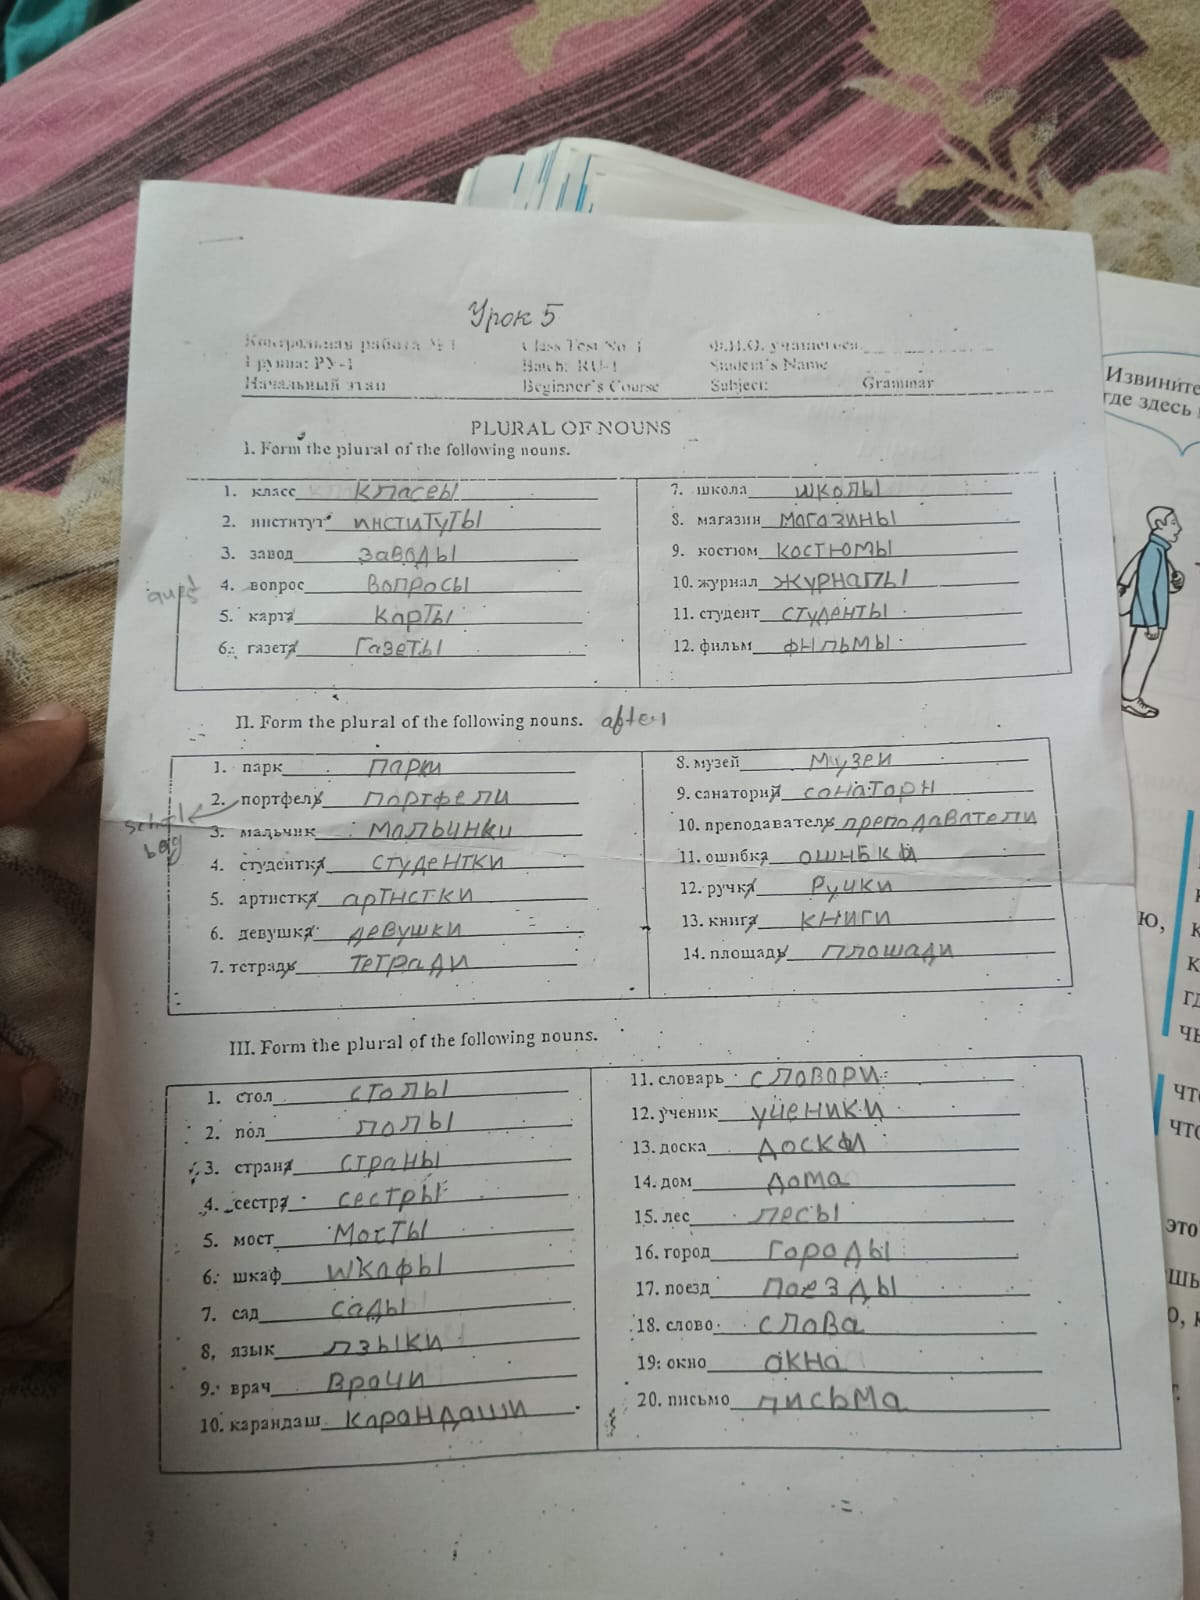 Урок 5
Контрольная работа № 1 Class Test No. 1 Ф.И.О. учащегося
Группа: РУ-1 Batch: RU-1 Student's Name
Начальный этап Beginner's Course Subject: Grammar
PLURAL OF NOUNS
I. Form the plural of the following nouns.
1. класс классы
2. институт институты
3. завод заводы
4. вопрос вопросы
5. карта карты
6. газета газеты
7. школа школы
8. магазин магазины
9. костюм костюмы
10. журнал журналы
11. студент студенты
12. фильм фильмы
II. Form the plural of the following nouns.
1. парк парки
2. портфель портфели
bag
3. мальчик мальчики
4. студентка студентки
5. артистка артистки
6. девушка девушки
7. тетрадь тетради
8. музей музеи
9. санаторий санатори
10. преподаватель преподаватели
11. ошибка ошибки
12. ручка ручки
13. книга книги
14. площадь площади
III. Form the plural of the following nouns.
1. стол столы
2. пол полы
3. страна страны
4. сестра сестры
5. мост мосты
6. шкаф шкафы
7. сад сады
8. язык языки
9. врач врачи
10. карандаш карандаши
11. словарь словари
12. ученик ученики
13. доска
14. дом дома
15. лес лесы
16. город городы
17. поезд поезды
18. слово слова
19. окно окна
20. письмо письма
Извините
где здесь
ю,
это